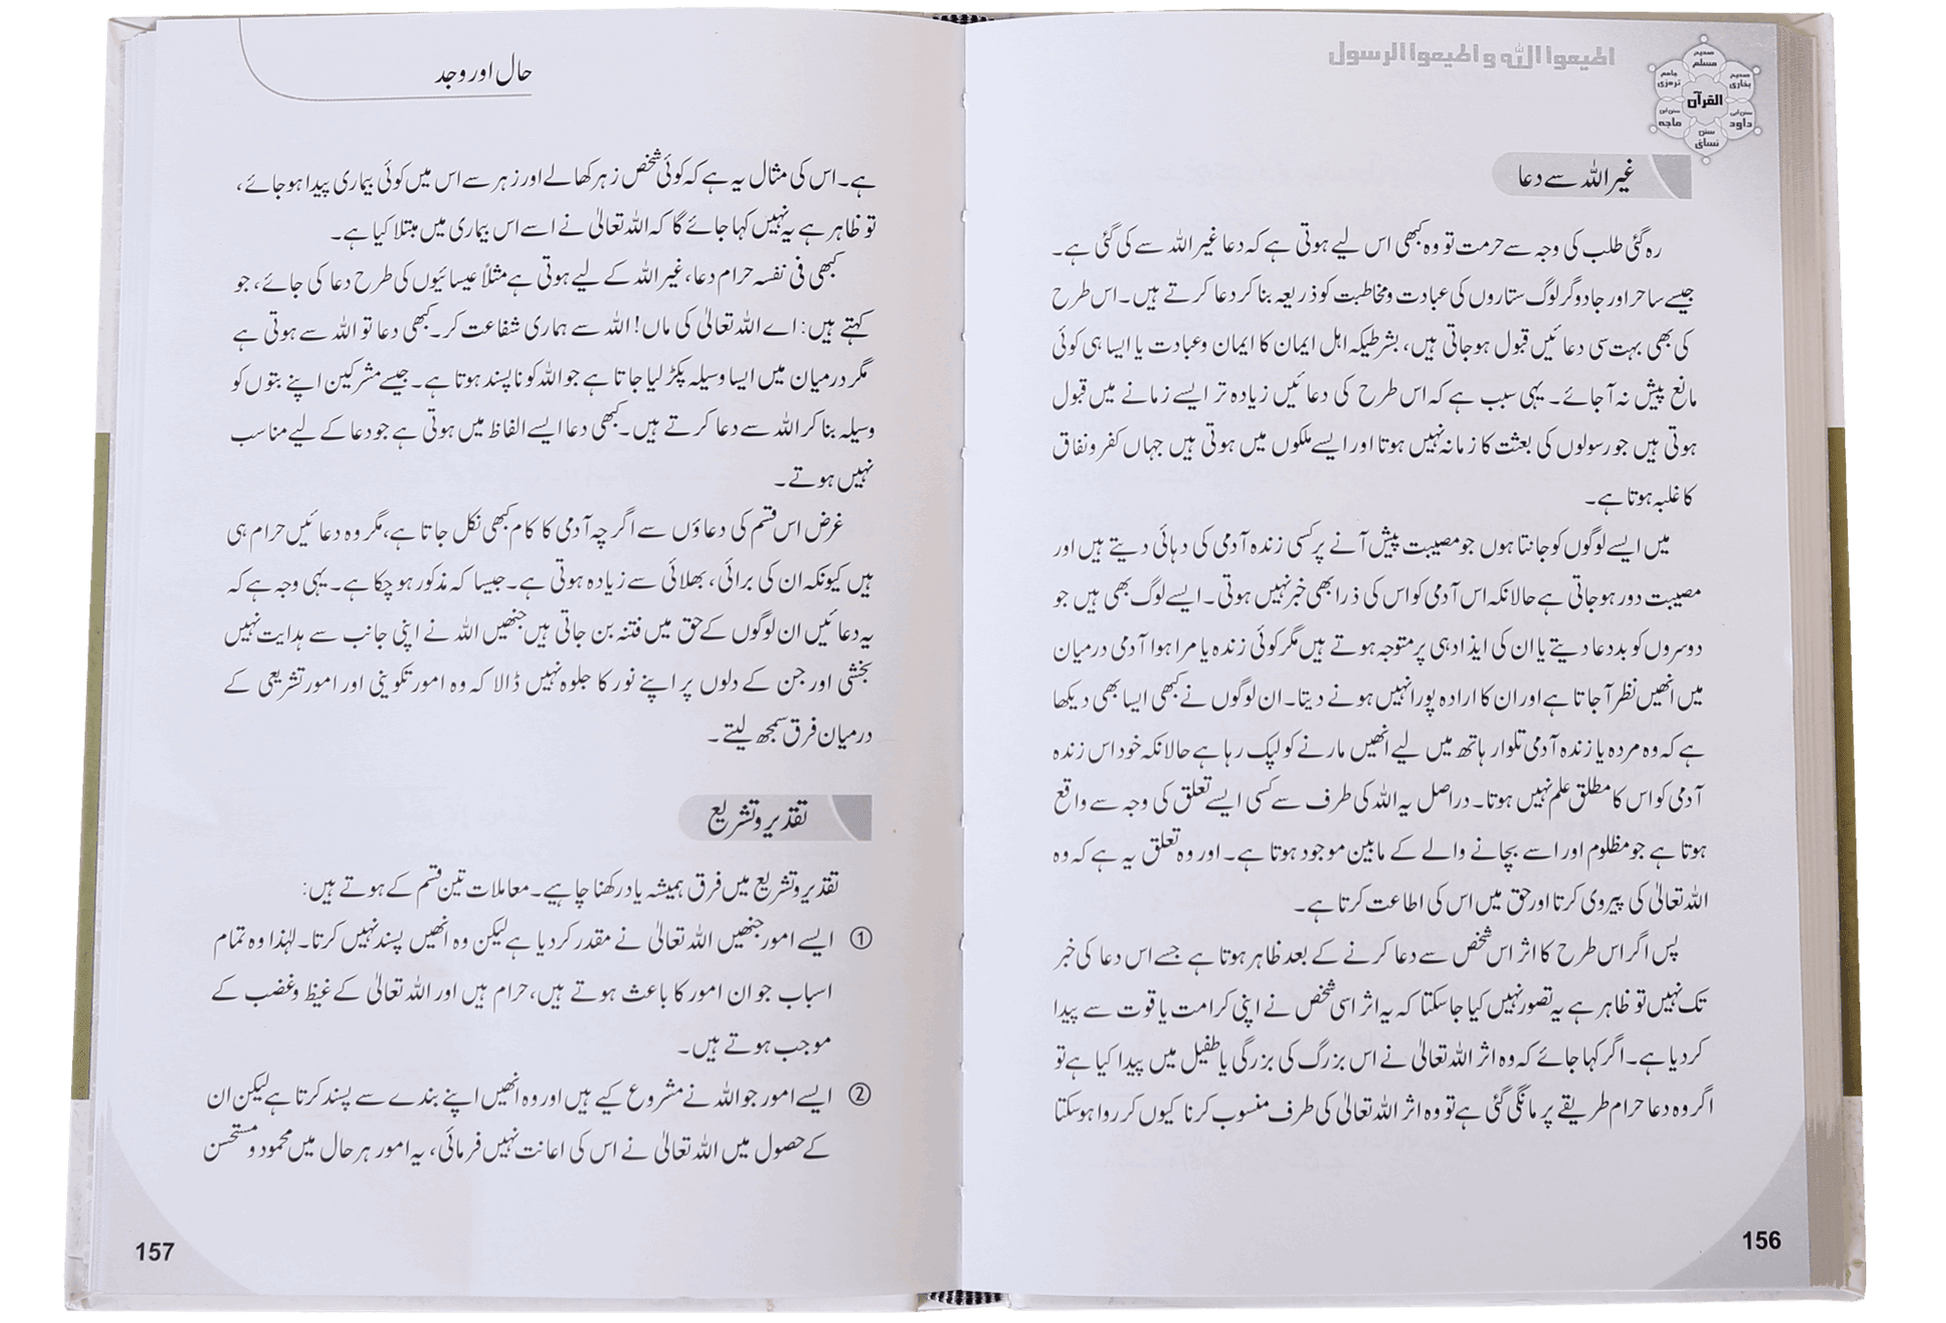 اطیعوا اللہ و اطیعوا الرسول
صحیح مسلم
صحیح بخاری
جامع ترمزی
القرآن
سنن ابی داود
سنن ابن ماجه
سنن نسائی
غیر اللہ سے دعا
رہ گئی طلب کی وجہ سے حرمت تو وہ کبھی اس لیے ہوتی ہے کہ دعا غیر اللہ سے کی گئی ہے۔
جیسے ساحر اور جادوگر لوگ ستاروں کی عبادت و مخاطبت کو ذریعہ بنا کر دعا کرتے ہیں۔ اس طرح
کی بھی بہت سی دعائیں قبول ہوجاتی ہیں، بشرطیکہ اہل ایمان کا ایمان و عبادت یا ایسا ہی کوئی
مانع پیش نہ آجائے۔ یہی سبب ہے کہ اس طرح کی دعائیں زیادہ تر ایسے زمانے میں قبول
ہوتی ہیں جو رسولوں کی بعثت کا زمانہ نہیں ہوتا اور ایسے ملکوں میں ہوتی ہیں جہاں کفر و نفاق
کا غلبہ ہوتا ہے۔
میں ایسے لوگوں کو جانتا ہوں جو مصیبت پیش آنے پر کسی زندہ آدمی کی دہائی دیتے ہیں اور
مصیبت دور ہوجاتی ہے حالانکہ اس آدمی کو اس کی ذرا بھی خبر نہیں ہوتی۔ ایسے لوگ بھی ہیں جو
دوسروں کو بددعا دیتے یا ان کی ایذا دہی پر متوجہ ہوتے ہیں مگر کوئی زندہ یا مرا ہوا آدمی درمیان
میں انھیں نظر آجاتا ہے اور ان کا ارادہ پورا نہیں ہونے دیتا۔ ان لوگوں نے کبھی ایسا بھی دیکھا
ہے کہ وہ مردہ یا زندہ آدمی تلوار ہاتھ میں لیے انھیں مارنے کو لپک رہا ہے حالانکہ خود اس زندہ
آدمی کو اس کا مطلق علم نہیں ہوتا۔ دراصل یہ اللہ کی طرف سے کسی ایسے تعلق کی وجہ سے واقع
ہوتا ہے جو مظلوم اور اسے بچانے والے کے مابین موجود ہوتا ہے۔ اور وہ تعلق یہ ہے کہ وہ
اللہ تعالیٰ کی پیروی کرتا اور حق میں اس کی اطاعت کرتا ہے۔
پس اگر اس طرح کا اثر اس شخص سے دعا کرنے کے بعد ظاہر ہوتا ہے جسے اس دعا کی خبر
تک نہیں تو ظاہر ہے یہ تصور نہیں کیا جاسکتا کہ یہ اثر اسی شخص نے اپنی کرامت یا قوت سے پیدا
کر دیا ہے۔ اگر کہا جائے کہ وہ اثر اللہ تعالیٰ نے اس بزرگ کی بزرگی یا طفیل میں پیدا کیا ہے تو
اگر وہ دعا حرام طریقے پر مانگی گئی ہے تو وہ اثر اللہ تعالیٰ کی طرف منسوب کرنا کیوں کر روا ہو سکتا
156
حال اور وجد
ہے۔ اس کی مثال یہ ہے کہ کوئی شخص زہر کھالے اور زہر سے اس میں کوئی بیماری پیدا ہو جائے،
تو ظاہر ہے یہ نہیں کہا جائے گا کہ اللہ تعالیٰ نے اسے اس بیماری میں مبتلا کیا ہے۔
کبھی فی نفسہ حرام دعا، غیر اللہ کے لیے ہوتی ہے مثلاً عیسائیوں کی طرح دعا کی جائے، جو
کہتے ہیں: اے اللہ تعالیٰ کی ماں! اللہ سے ہماری شفاعت کر۔ کبھی دعا تو اللہ سے ہوتی ہے
مگر درمیان میں ایسا وسیلہ پکڑ لیا جاتا ہے جو اللہ کو ناپسند ہوتا ہے۔ جیسے مشرکین اپنے بتوں کو
وسیلہ بنا کر اللہ سے دعا کرتے ہیں۔ کبھی دعا ایسے الفاظ میں ہوتی ہے جو دعا کے لیے مناسب
نہیں ہوتے۔
غرض اس قسم کی دعاؤں سے اگرچہ آدمی کا کام کبھی نکل جاتا ہے، مگر وہ دعائیں حرام ہی
ہیں کیونکہ ان کی برائی، بھلائی سے زیادہ ہوتی ہے۔ جیسا کہ مذکور ہو چکا ہے۔ یہی وجہ ہے کہ
یہ دعائیں ان لوگوں کے حق میں فتنہ بن جاتی ہیں جنھیں اللہ نے اپنی جانب سے ہدایت نہیں
بخشی اور جن کے دلوں پر اپنے نور کا جلوہ نہیں ڈالا کہ وہ امور تکوینی اور امور تشریعی کے
درمیان فرق سمجھ لیتے۔
تقدیر و تشریع
تقدیر و تشریع میں فرق ہمیشہ یاد رکھنا چاہیے۔ معاملات تین قسم کے ہوتے ہیں:
① ایسے امور جنھیں اللہ تعالیٰ نے مقدر کر دیا ہے لیکن وہ انھیں پسند نہیں کرتا۔ لہٰذا وہ تمام
اسباب جو ان امور کا باعث ہوتے ہیں، حرام ہیں اور اللہ تعالیٰ کے غیظ و غضب کے
موجب ہوتے ہیں۔
② ایسے امور جو اللہ نے مشروع کیے ہیں اور وہ انھیں اپنے بندے سے پسند کرتا ہے لیکن ان
کے حصول میں اللہ تعالیٰ نے اس کی اعانت نہیں فرمائی، یہ امور ہر حال میں محمود و مستحسن
157